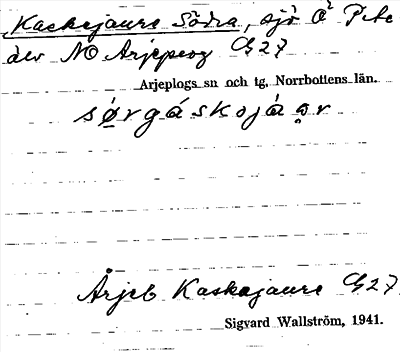 Kaskajaure Södra, sjö å Pite
älv NO Arjeplog G27
Arjeplogs sn och tg, Norrbottens län.
sø̀rgáskojáǫr
Årjeb Kaskajaure G27
Sigvard Wallström, 1941.